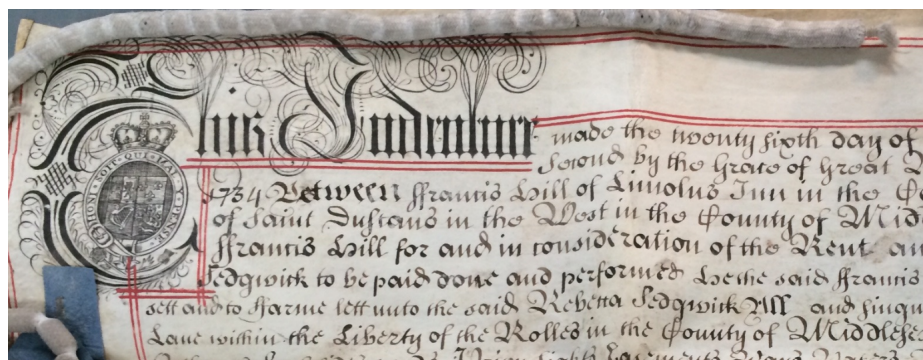 This Indenture made the twenty sixth day of
Second by the Grace of Great
HONI SOIT QUI MAL Y PENSE
1734 Between Ffrancis Hill of Lincolns Inn in the
of Saint Dunstans in the West in the County of Midd
Ffrancis Hill for and in consideration of the Rent an
Sedgwick to be paid done and performed he the said Ffrancis
sett and to Farme lett unto the said Rebecca Sedgwick All and singu
Lane within the Liberty of the Rolles in the County of Middlese